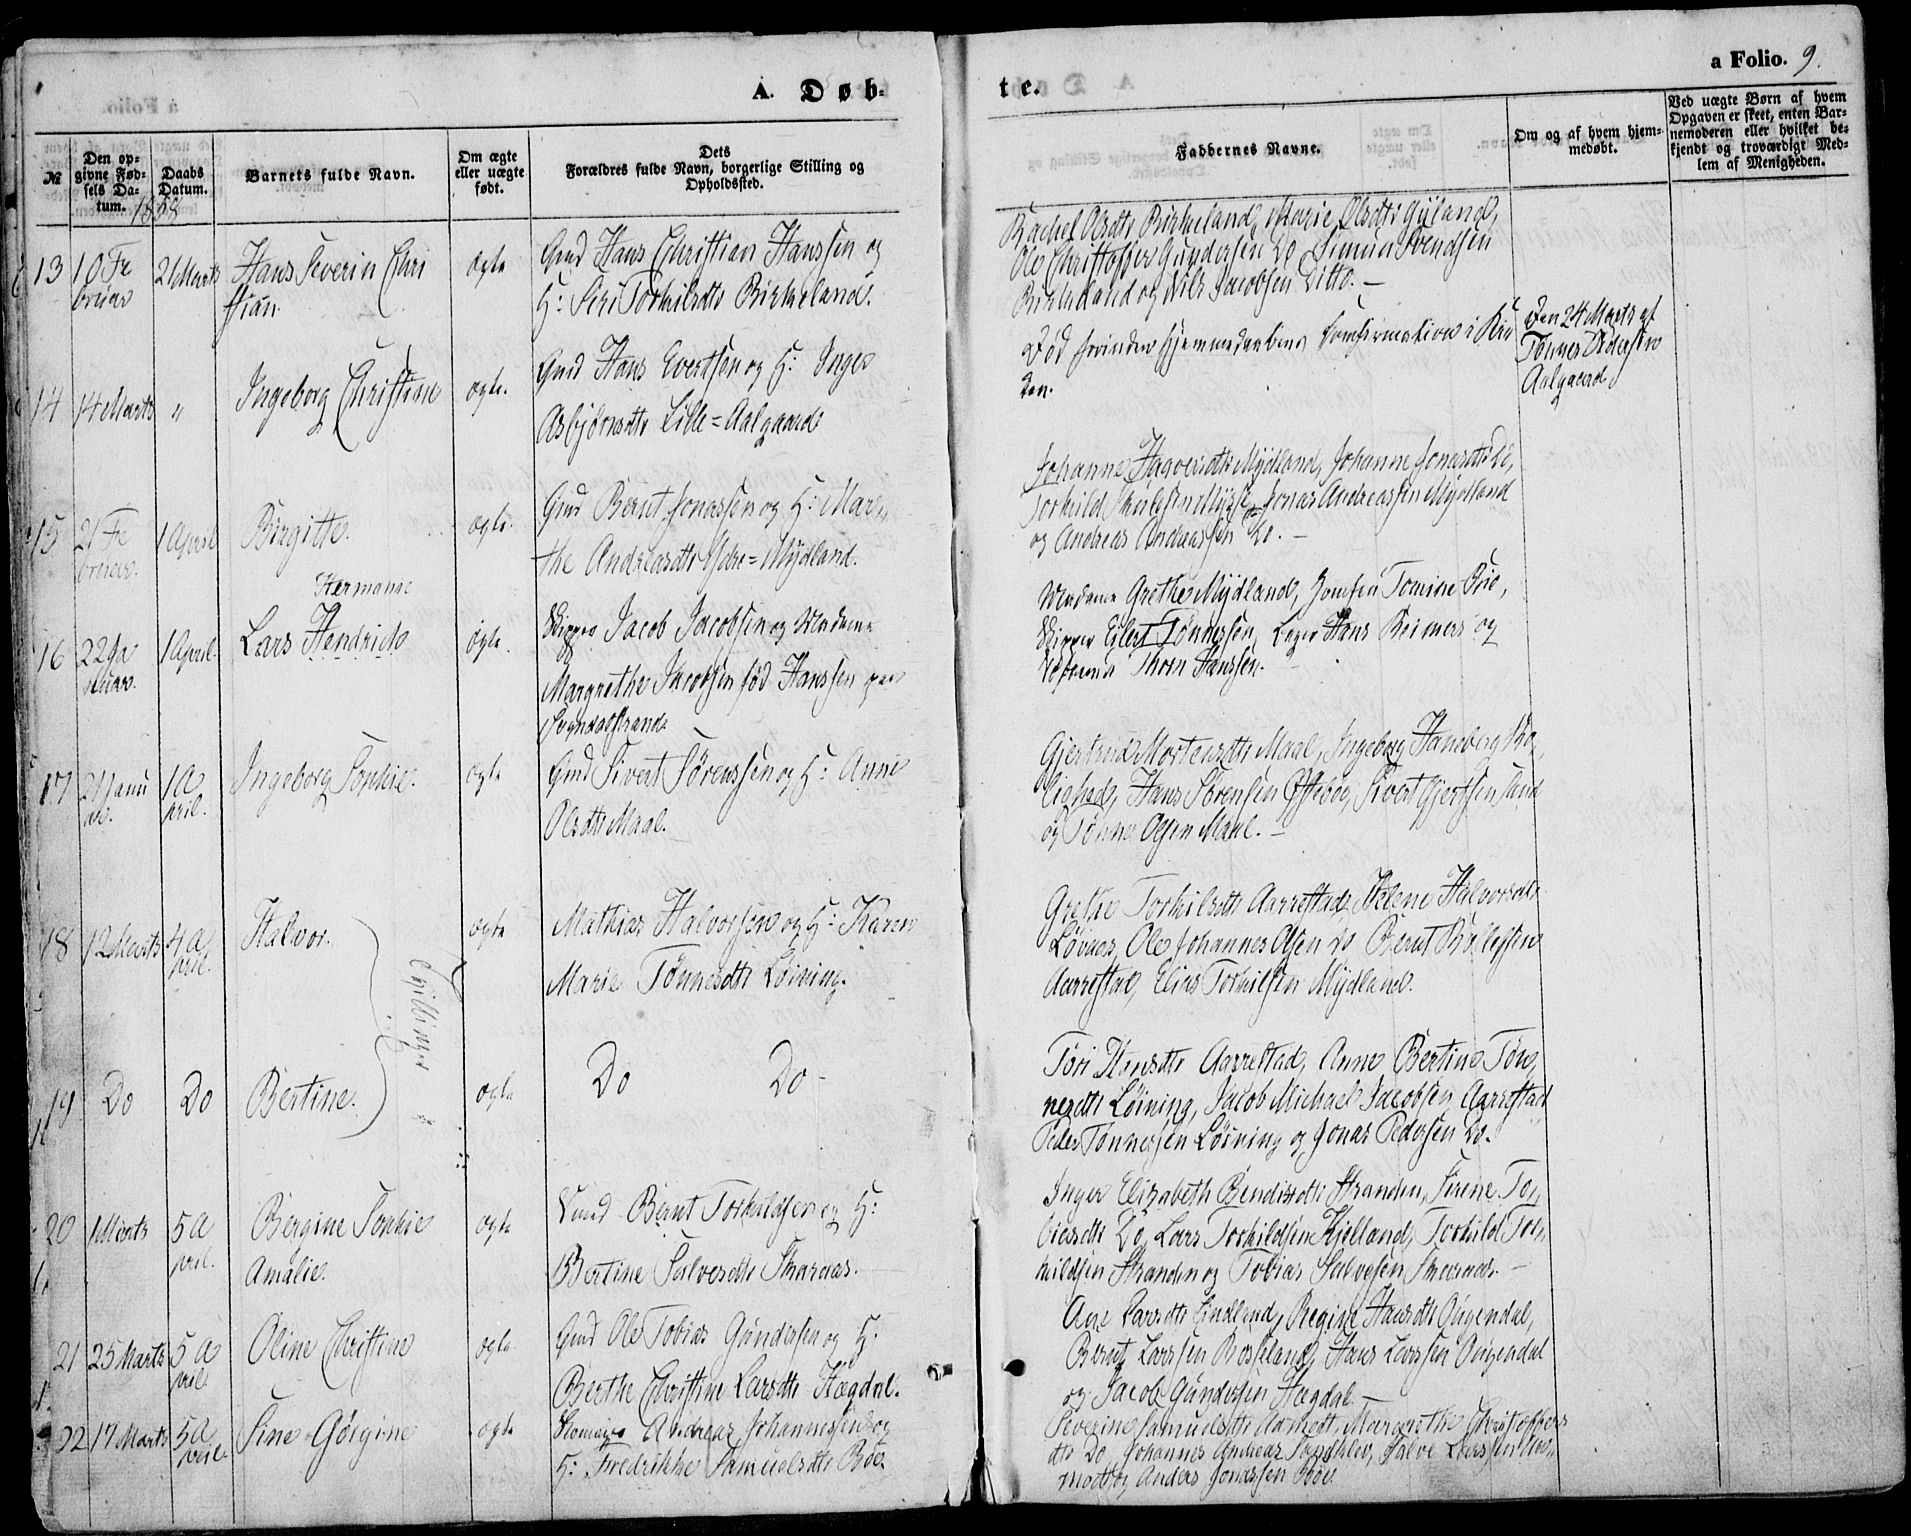 A. Døb-
te.
a Folio. 9.
№
Den op-
givne Fød-
sels Da-
tum.
1858
Daabs
Datum.
Barnets fulde Navn.
Om ægte
eller uægte
født.
Dets
Forældres fulde Navn, borgerlige Stilling og
Opholdssted.
Faddernes Navne.
Om og af hvem hjem-
medøbt.
Ved uægte Børn af hvem
Opgaven er skeet, enten Bar-
nemoderen eller hvilket be-
kjendt og troværdigt Med-
lem af Menigheden.
13 10 Fe
bruar
21 Marts
Hans Severin Chri
stian.
ægte
Gmd Hans Christian Hanssen og
H: Siri Torkilsdtr Birkeland.
Rachel Olsdtr Birkeland, Marie Olsdtr Gyland,
Ole Christoffer Gundersen Do Simon Svendsen
Birkeland og Nils Jacobsen Ditto. —
14 14 Marts "
Ingeborg Christine
ægte.
Gmd Hans Evertsen og H: Inger
Asbjørnsdtr Lille=Aalgaard
Død forinden Hjemmedaabens Confirmation i Kir
ken.
Den 24 Marts af
Tønnes Pederse
Aalgaard
15 21 Fe
bruar.
1 April
Birgitte.
ægte.
Gmd Bernt Jonassen og H: Mar
the Andreasdtr Ydre=Mydland.
Johanne Mydland, Johanne Jonasdtr Do,
Torkild Jonas Andreassen Mydland
og Andreas Andreassen Do. —
16 22 Ja
nuar.
1 April.
Hermann
Lars Hendrick
ægte.
Skipper Jacob Jacobsen og Madame
Margrethe Jacobsen fød Hanssen paa
Sogndalstrand
Madame Grethe Mydland, Jomfru Tomine
Skipper Eilert Tønnesen, Hans Reimers og
Thorn Hanssen.
17 21 Janu
ar.
1 A
pril.
Ingeborg Sophie.
ægte
Gmd Sivert Sørenssen og H: Anne
Olsdtr Maal.
Gjertrud Mortensdtr Maal, Ingeborg Haneberg Ro
lighed, Hans Sørensen Østebøe, Sivert Gjertsen
og Tønnes Olsen Maal. —
18 12 Marts 4 A
pril.
Halvor.
Tvillinger
ægte
Mathias Halvorsen og H: Karen
Marie Tønnesdtr Løining.
Grethe Torkilsdtr Aarrestad, Helene Halvorsdtr
Løvaas, Ole Johannes Olsen Do Bernt
Aarrestad, Elias Torkilsen Mydland.
19 Do Do Bertine.
ægte
Do Do
Tori Hansdtr Aarrestad, Anne Bertine Tøn
nesdtr Løining, Jacob Michael Jacobsen Aarrestad
Peder Tønnesen Løining og Jonas Pedersen Do.
20 1 Marts 5 A
pril.
Bergine Sophie
Amalie.
ægte
Bernt Torkildsen og H:
Bertine Salvesdtr Skarnæs.
Inger Elizabeth Bendixdtr Stranden, Sirene To
biasdtr Do, Lars Torkildsen Kjelland, Torkild Tor
kildsen Stranden og Tobias Salvesen Skarnæs. —
21 25 Marts 5 A
pril
Oline Christine
ægte.
Gmd Ole Tobias Gundersen og H.
Berthe Christine Larsdtr Hægdal.
Ane Larsdtr Lindland, Regine Hansdtr Augendal,
Bernt Larssen Rosseland, Hans Larssen Augendal
og Jacob Gundersen Hægdal —
22 17 Marts 5 A
pril
Sine Gørgine
ægte
Skomager Andreas Johannessen og
H: Fredrikke Samuelsdtr Bøe.
Severine Samuelsdtr Aamodt, Margrethe Christoffers
dtr Do, Johannes Andreas Salve Larssen Aa
modt og Anders Jonassen Bøe.